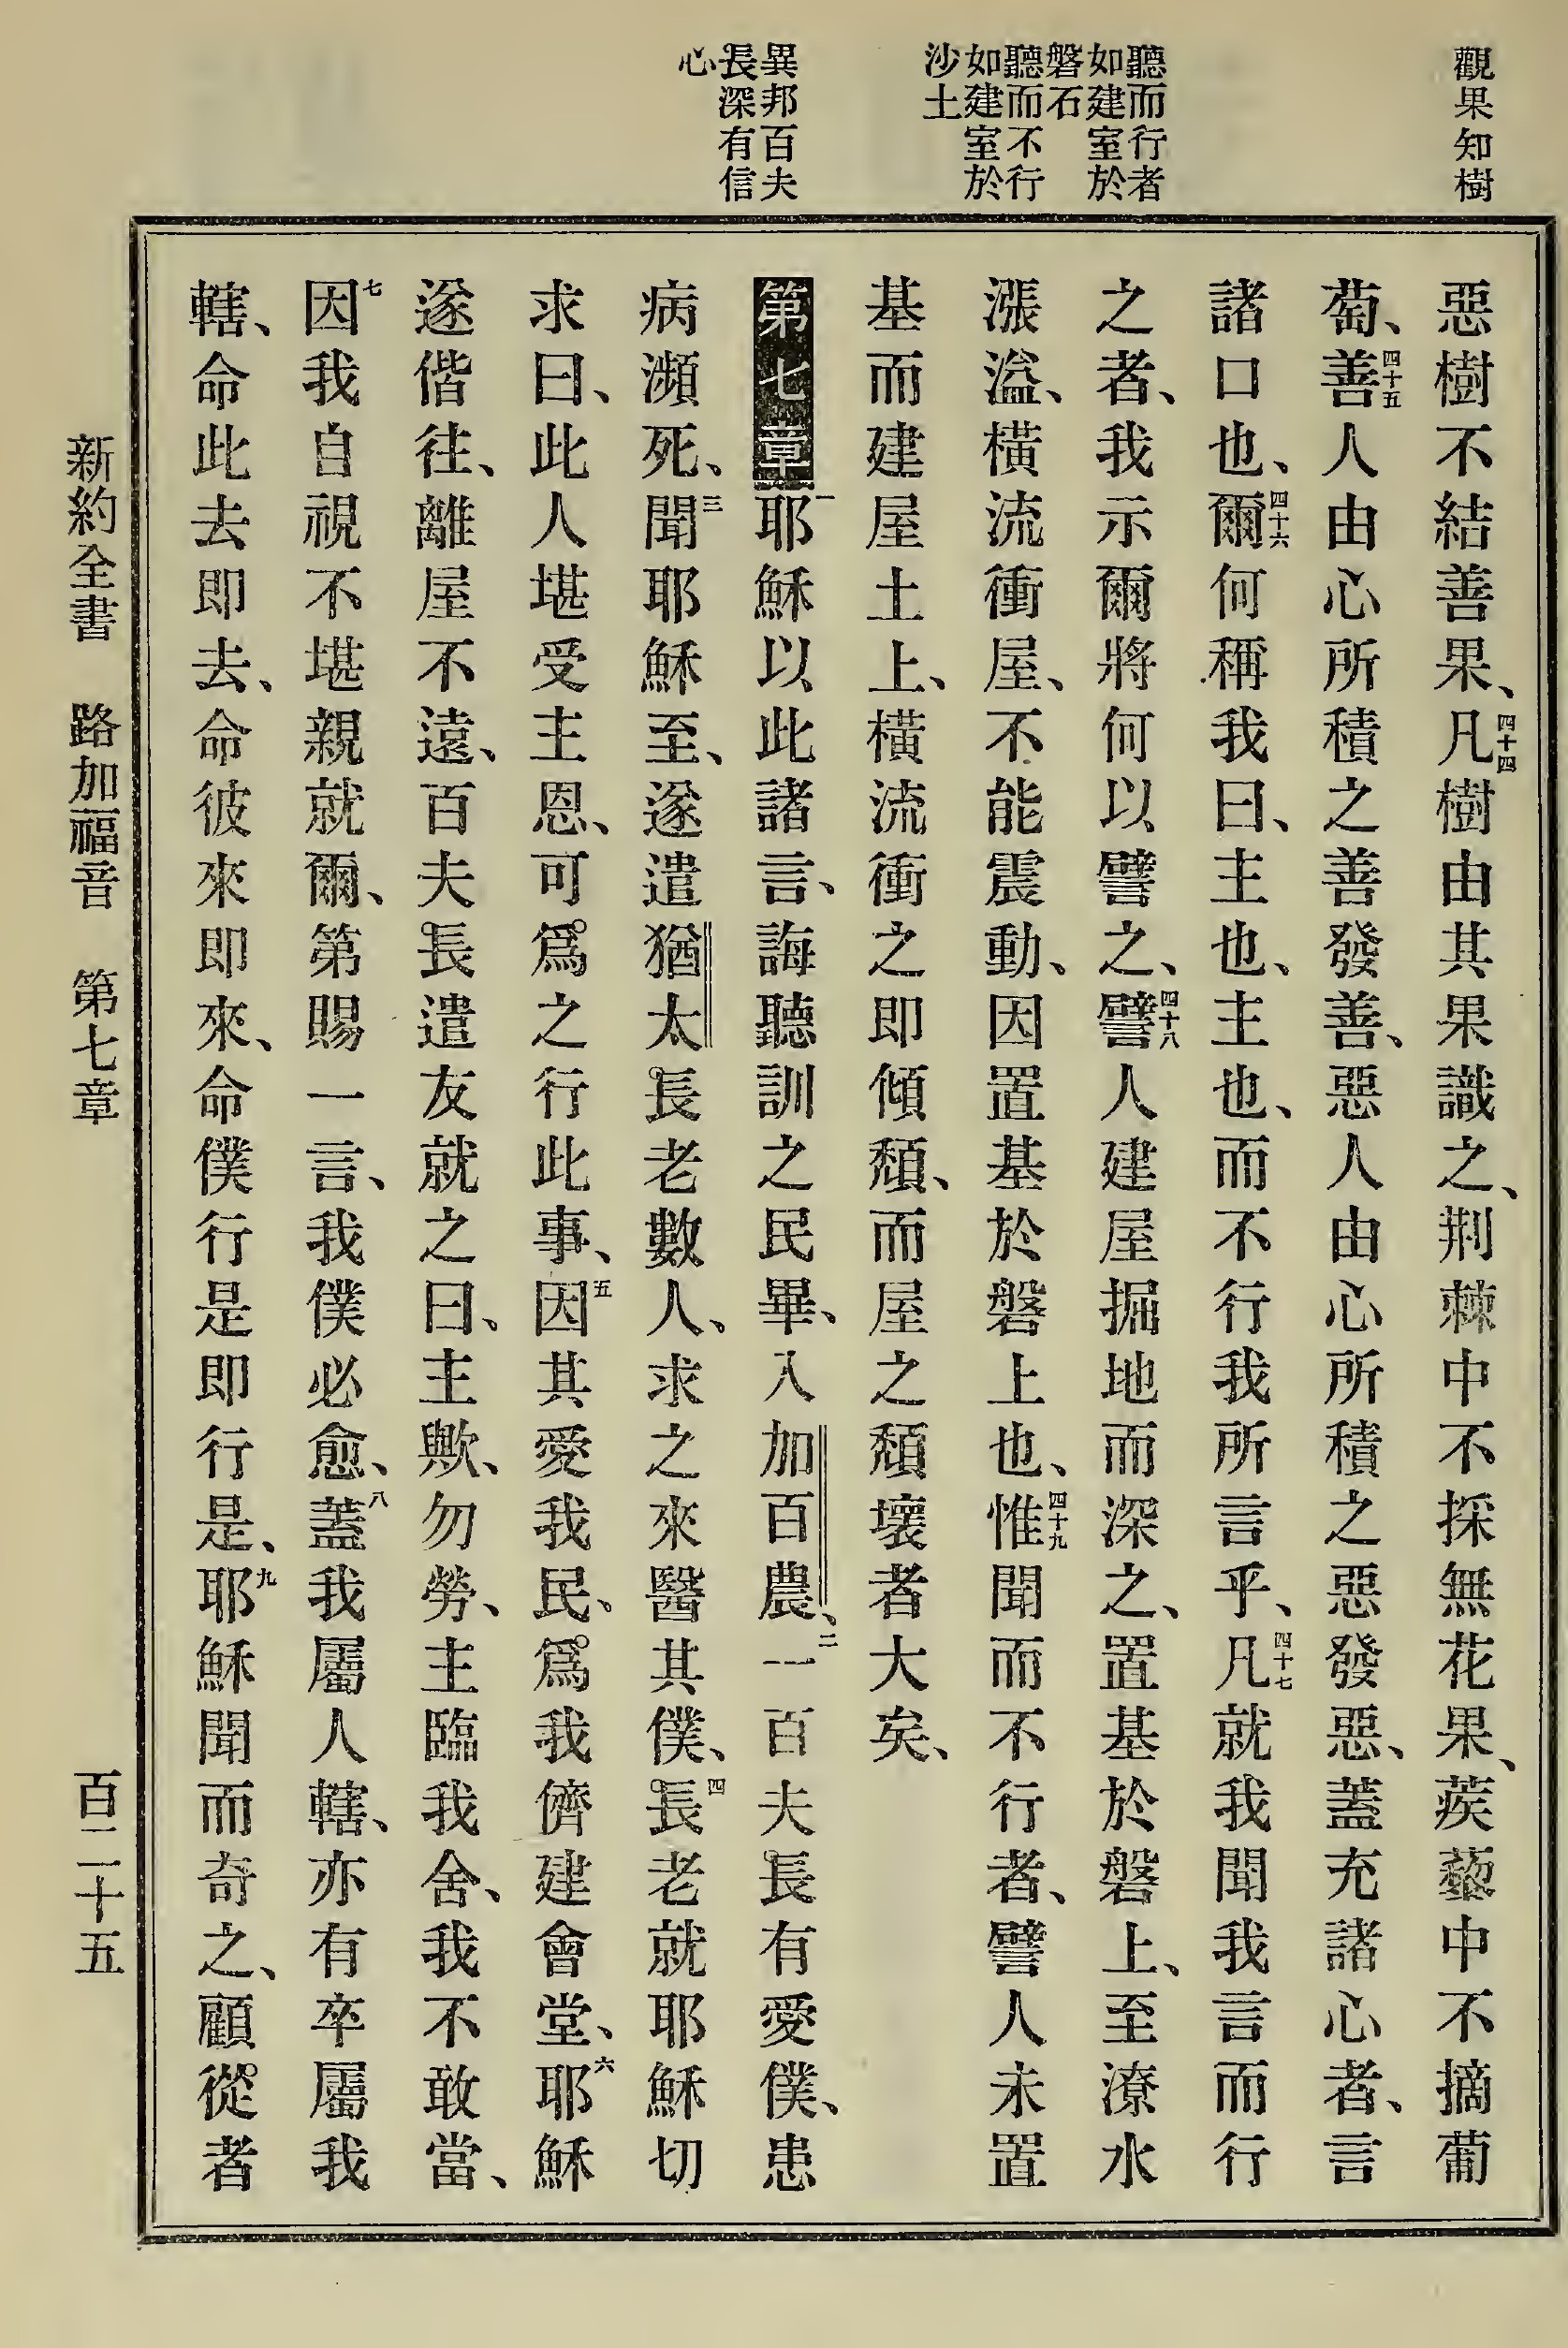 觀果知樹
聽而行者
如建室於
磐石
聽而不行
如建室於
沙土
異邦百夫
長深有信
心
惡樹不結善果、四十四凡樹由其果識之、荆棘中不採無花果、蒺藜中不摘葡
萄、四十五善人由心所積之善發善、惡人由心所積之惡發惡、蓋充諸心者、言
諸口也、四十六爾何稱我曰、主也、主也、而不行我所言乎、四十七凡就我聞我言而行
之者、我示爾將何以譬之、四十八譬人建屋掘地而深之、置基於磐上、至潦水
漲溢、橫流衝屋、不能震動、因置基於磐上也、四十九惟聞而不行者、譬人未置
基而建屋土上、橫流衝之即傾頹、而屋之頹壞者大矣、
第七章 一耶穌以此諸言、誨聽訓之民畢、入加百農、二一百夫長有愛僕、患
病瀕死、三聞耶穌至、遂遣猶太長老數人、求之來醫其僕、四長老就耶穌切
求曰、此人堪受主恩、可爲之行此事、五因其愛我民、爲我儕建會堂、六耶穌
遂偕往、離屋不遠、百夫長遣友就之曰、主歟、勿勞、主臨我舍、我不敢當、
七因我自視不堪親就爾、第賜一言、我僕必愈、八蓋我屬人轄、亦有卒屬我
轄、命此去即去、命彼來即來、命僕行是即行是、九耶穌聞而奇之、顧從者
新約全書 路加福音 第七章 百二十五